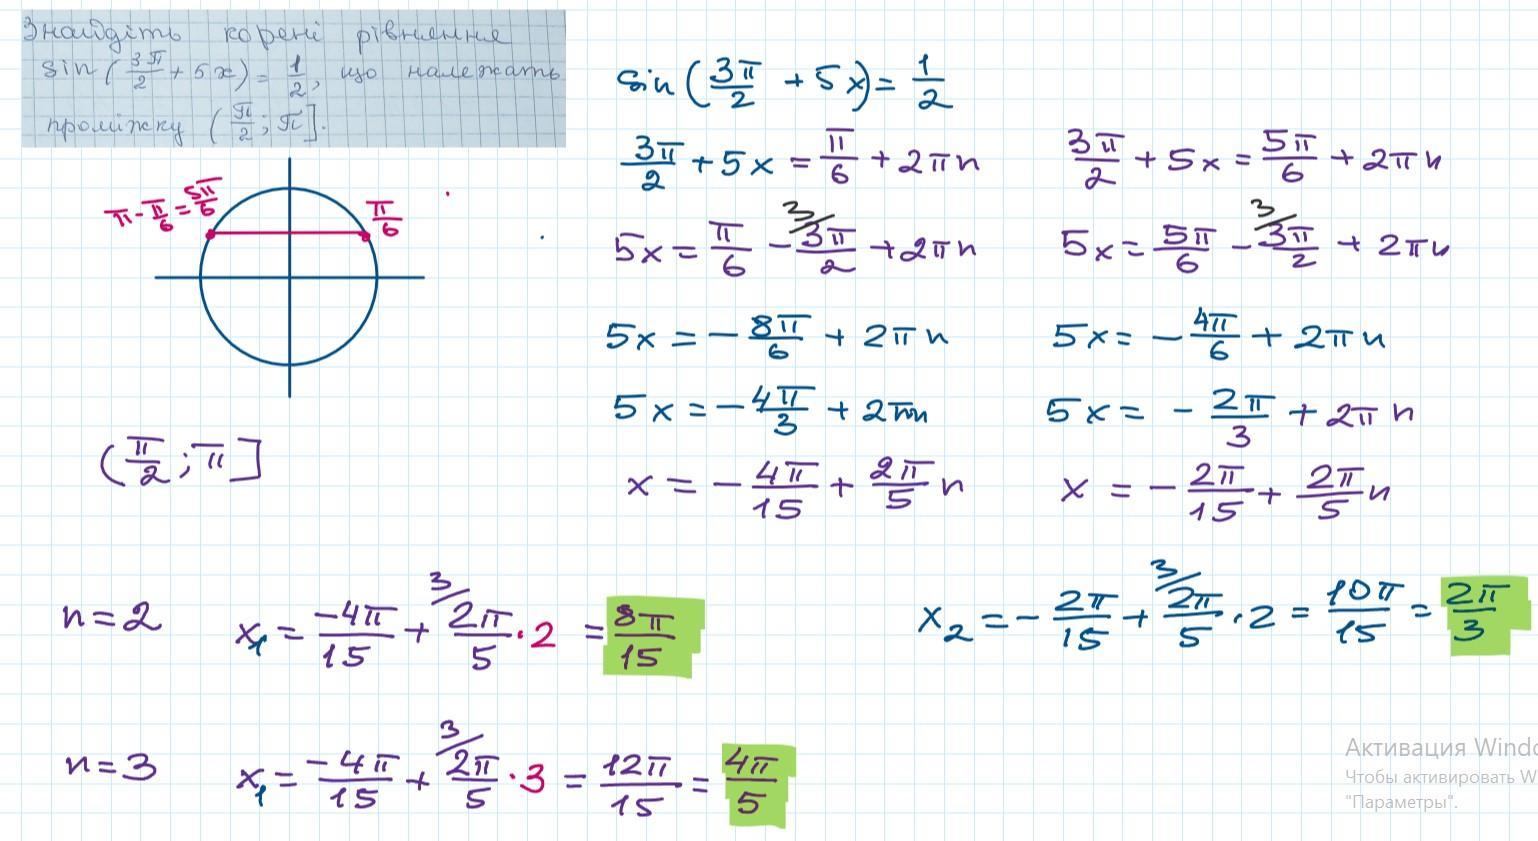 Знайдіть корені рівняння
sin (3π/2 + 5x) = 1/2, що належать
проміжку (π/2; π].
π - π/6 = 5π/6
π/6
(π/2; π]
sin (3π/2 + 5x) = 1/2
3π/2 + 5x = π/6 + 2πn
5x = π/6 - 3/ 3π/2 + 2πn
5x = - 8π/6 + 2πn
5x = - 4π/3 + 2πn
x = - 4π/15 + 2π/5 n
3π/2 + 5x = 5π/6 + 2πn
5x = 5π/6 - 3/ 3π/2 + 2πn
5x = - 4π/6 + 2πn
5x = - 2π/3 + 2πn
x = - 2π/15 + 2π/5 n
n = 2 x₁ = -4π/15 + 3/ 2π/5 · 2 = 8π/15
x₂ = - 2π/15 + 3/ 2π/5 · 2 = 10π/15 = 2π/3
n = 3 x₁ = -4π/15 + 3/ 2π/5 · 3 = 12π/15 = 4π/5
Активация Windo
Чтобы активировать W
"Параметры".